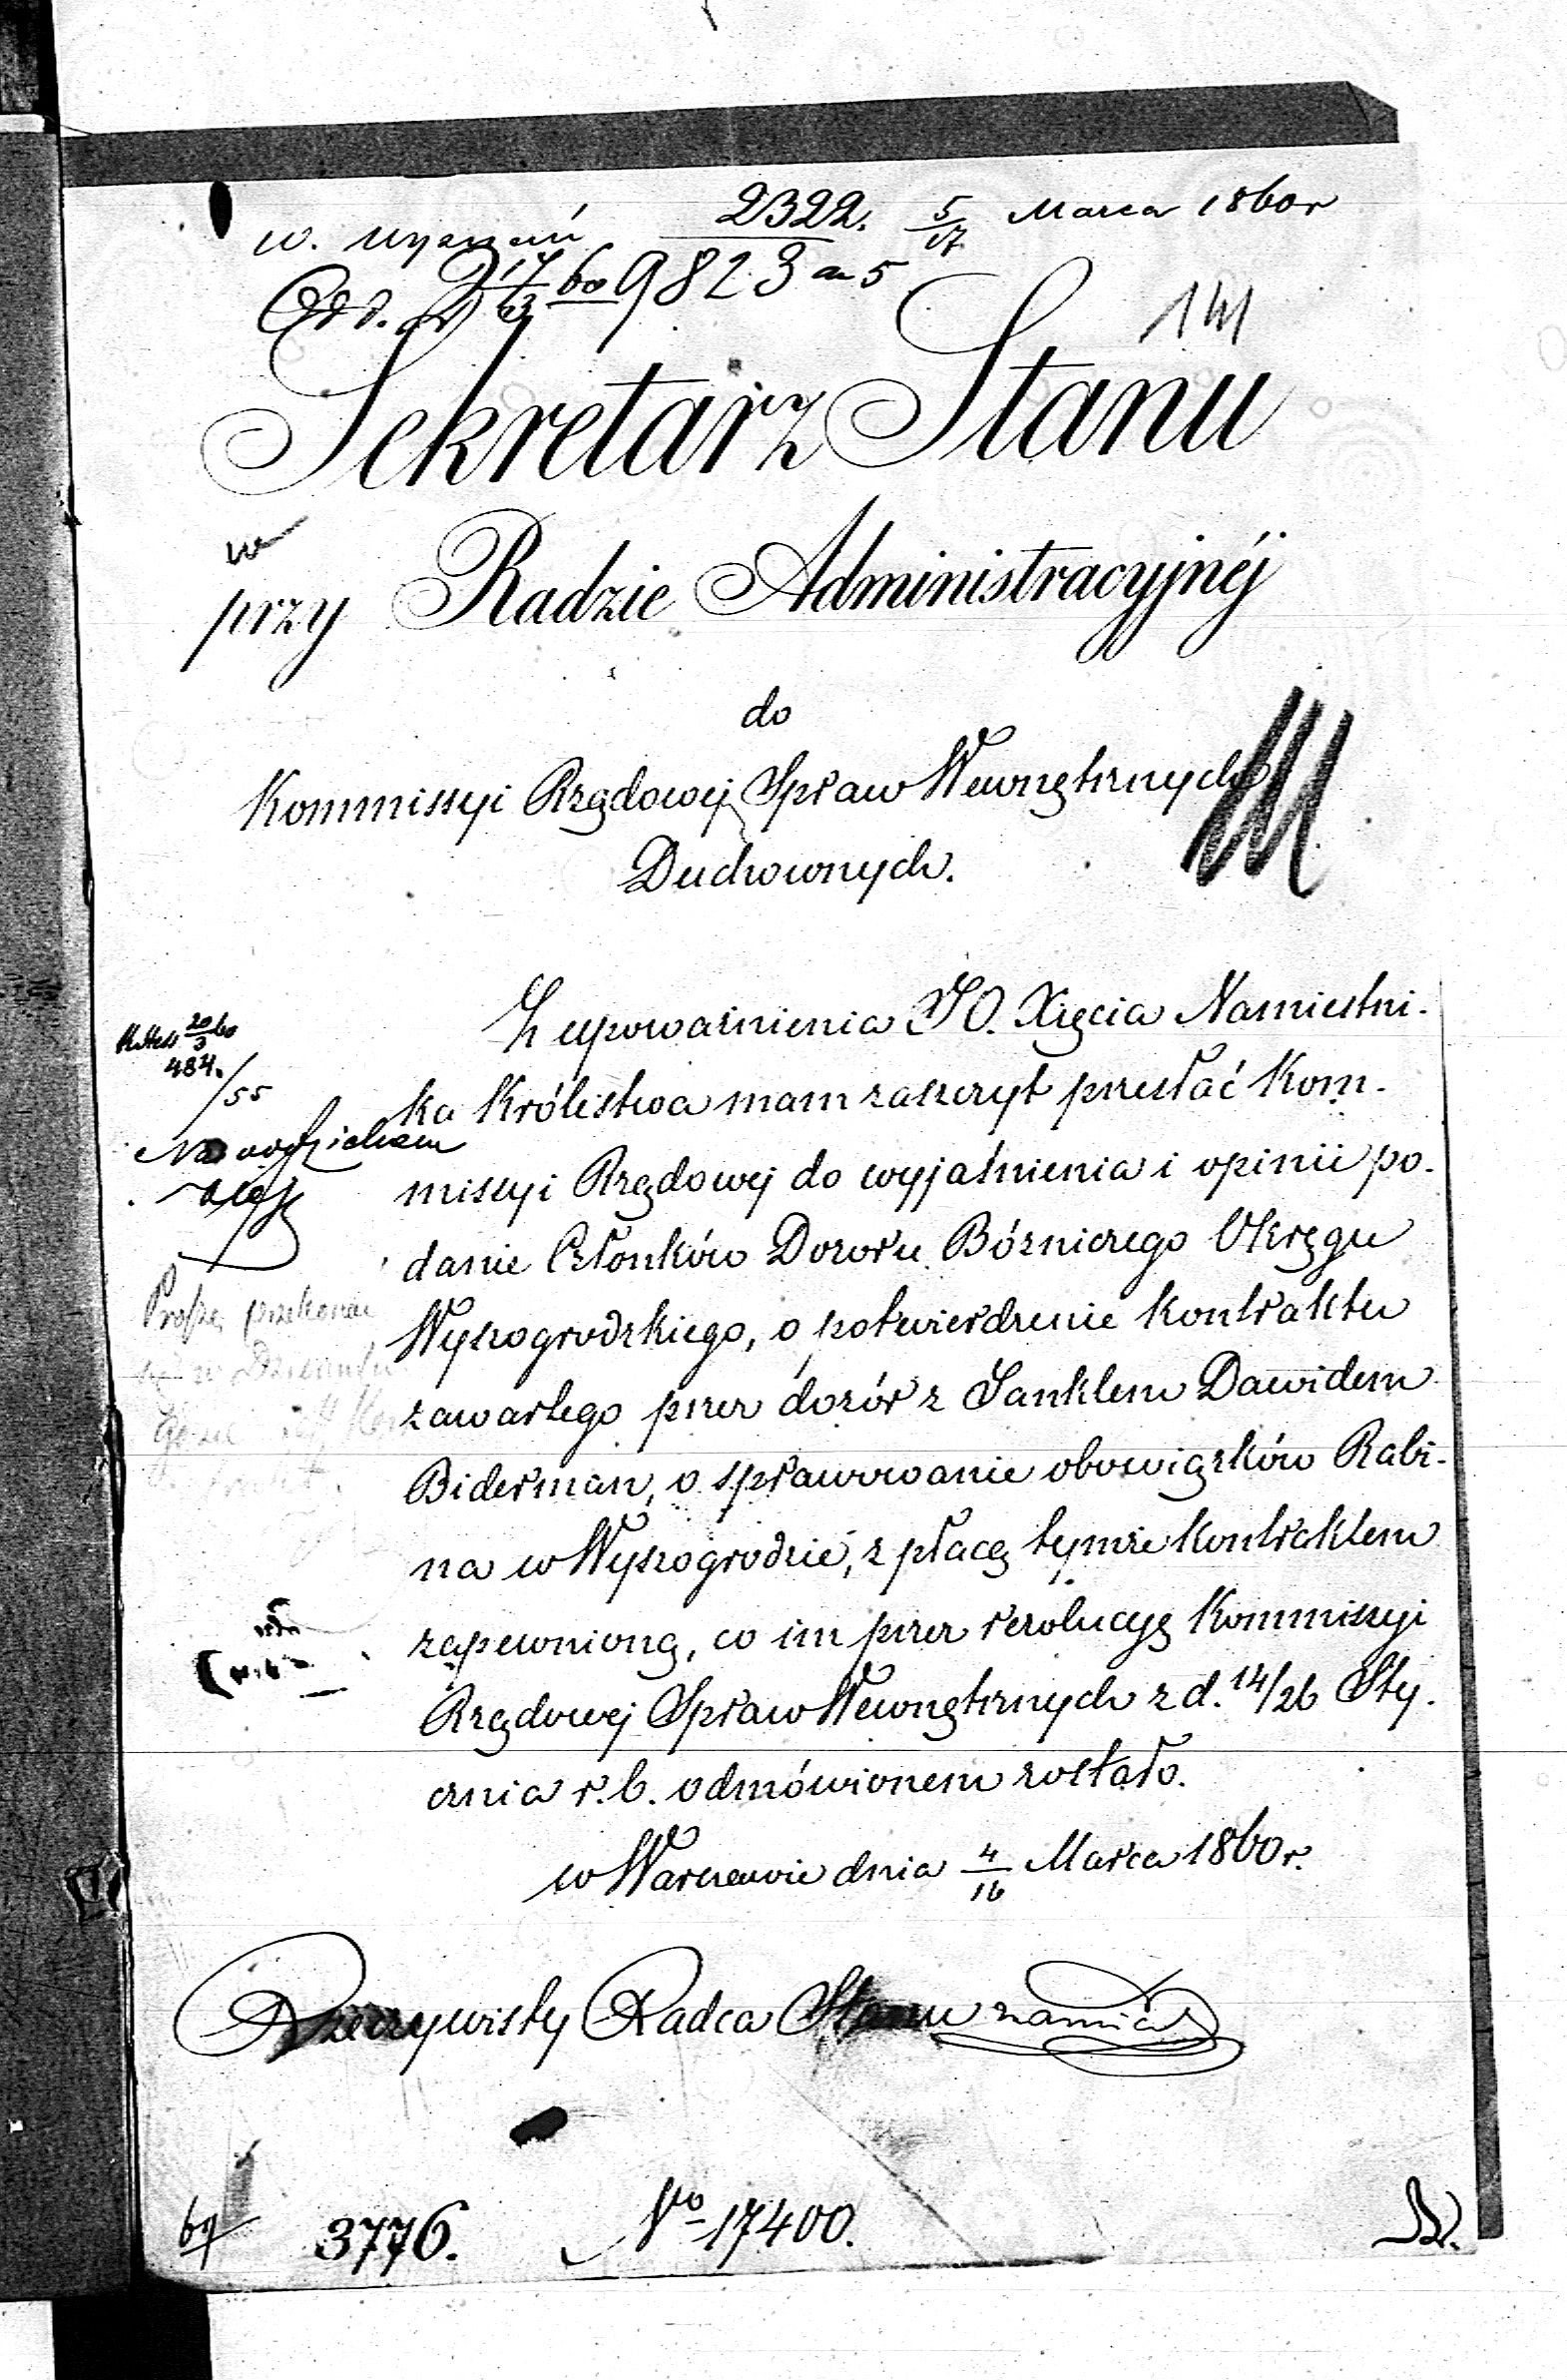 2322. 5/17 Marca 1860 r
w.
17/3 60 9823 a 5
141
Sekretarz Stanu
przy Radzie Administracyjnéj
do
Kommissyi Rządowej Spraw Wewnętrznych
Duchownych.
Z upoważnienia JO. Xięcia Namiestni-
ka Królestwa mam zaszczyt przesłać Kom-
missyi Rządowej do wyjaśnienia i opinii po-
danie Członków Dozoru Bóżniczego Okręgu
Wyszogrodzkiego, o potwierdzenie kontraktu
zawartego przez dozór z Janklem Dawidem
Biderman, o sprawowanie obowiązków Rabi-
na w Wyszogrodzie, z płacą tymże kontraktem
zapewnioną, co im przez rezolucyą Kommissyi
Rządowej Spraw Wewnętrznych z d. 14/26 Sty-
cznia r. b. odmówionem zostało.
w Warszawie dnia 4/16 Marca 1860 r.
20/3 60
484.
/55
Proszę przekonać
Rzeczywisty Radca Stanu
3776. No 17400.